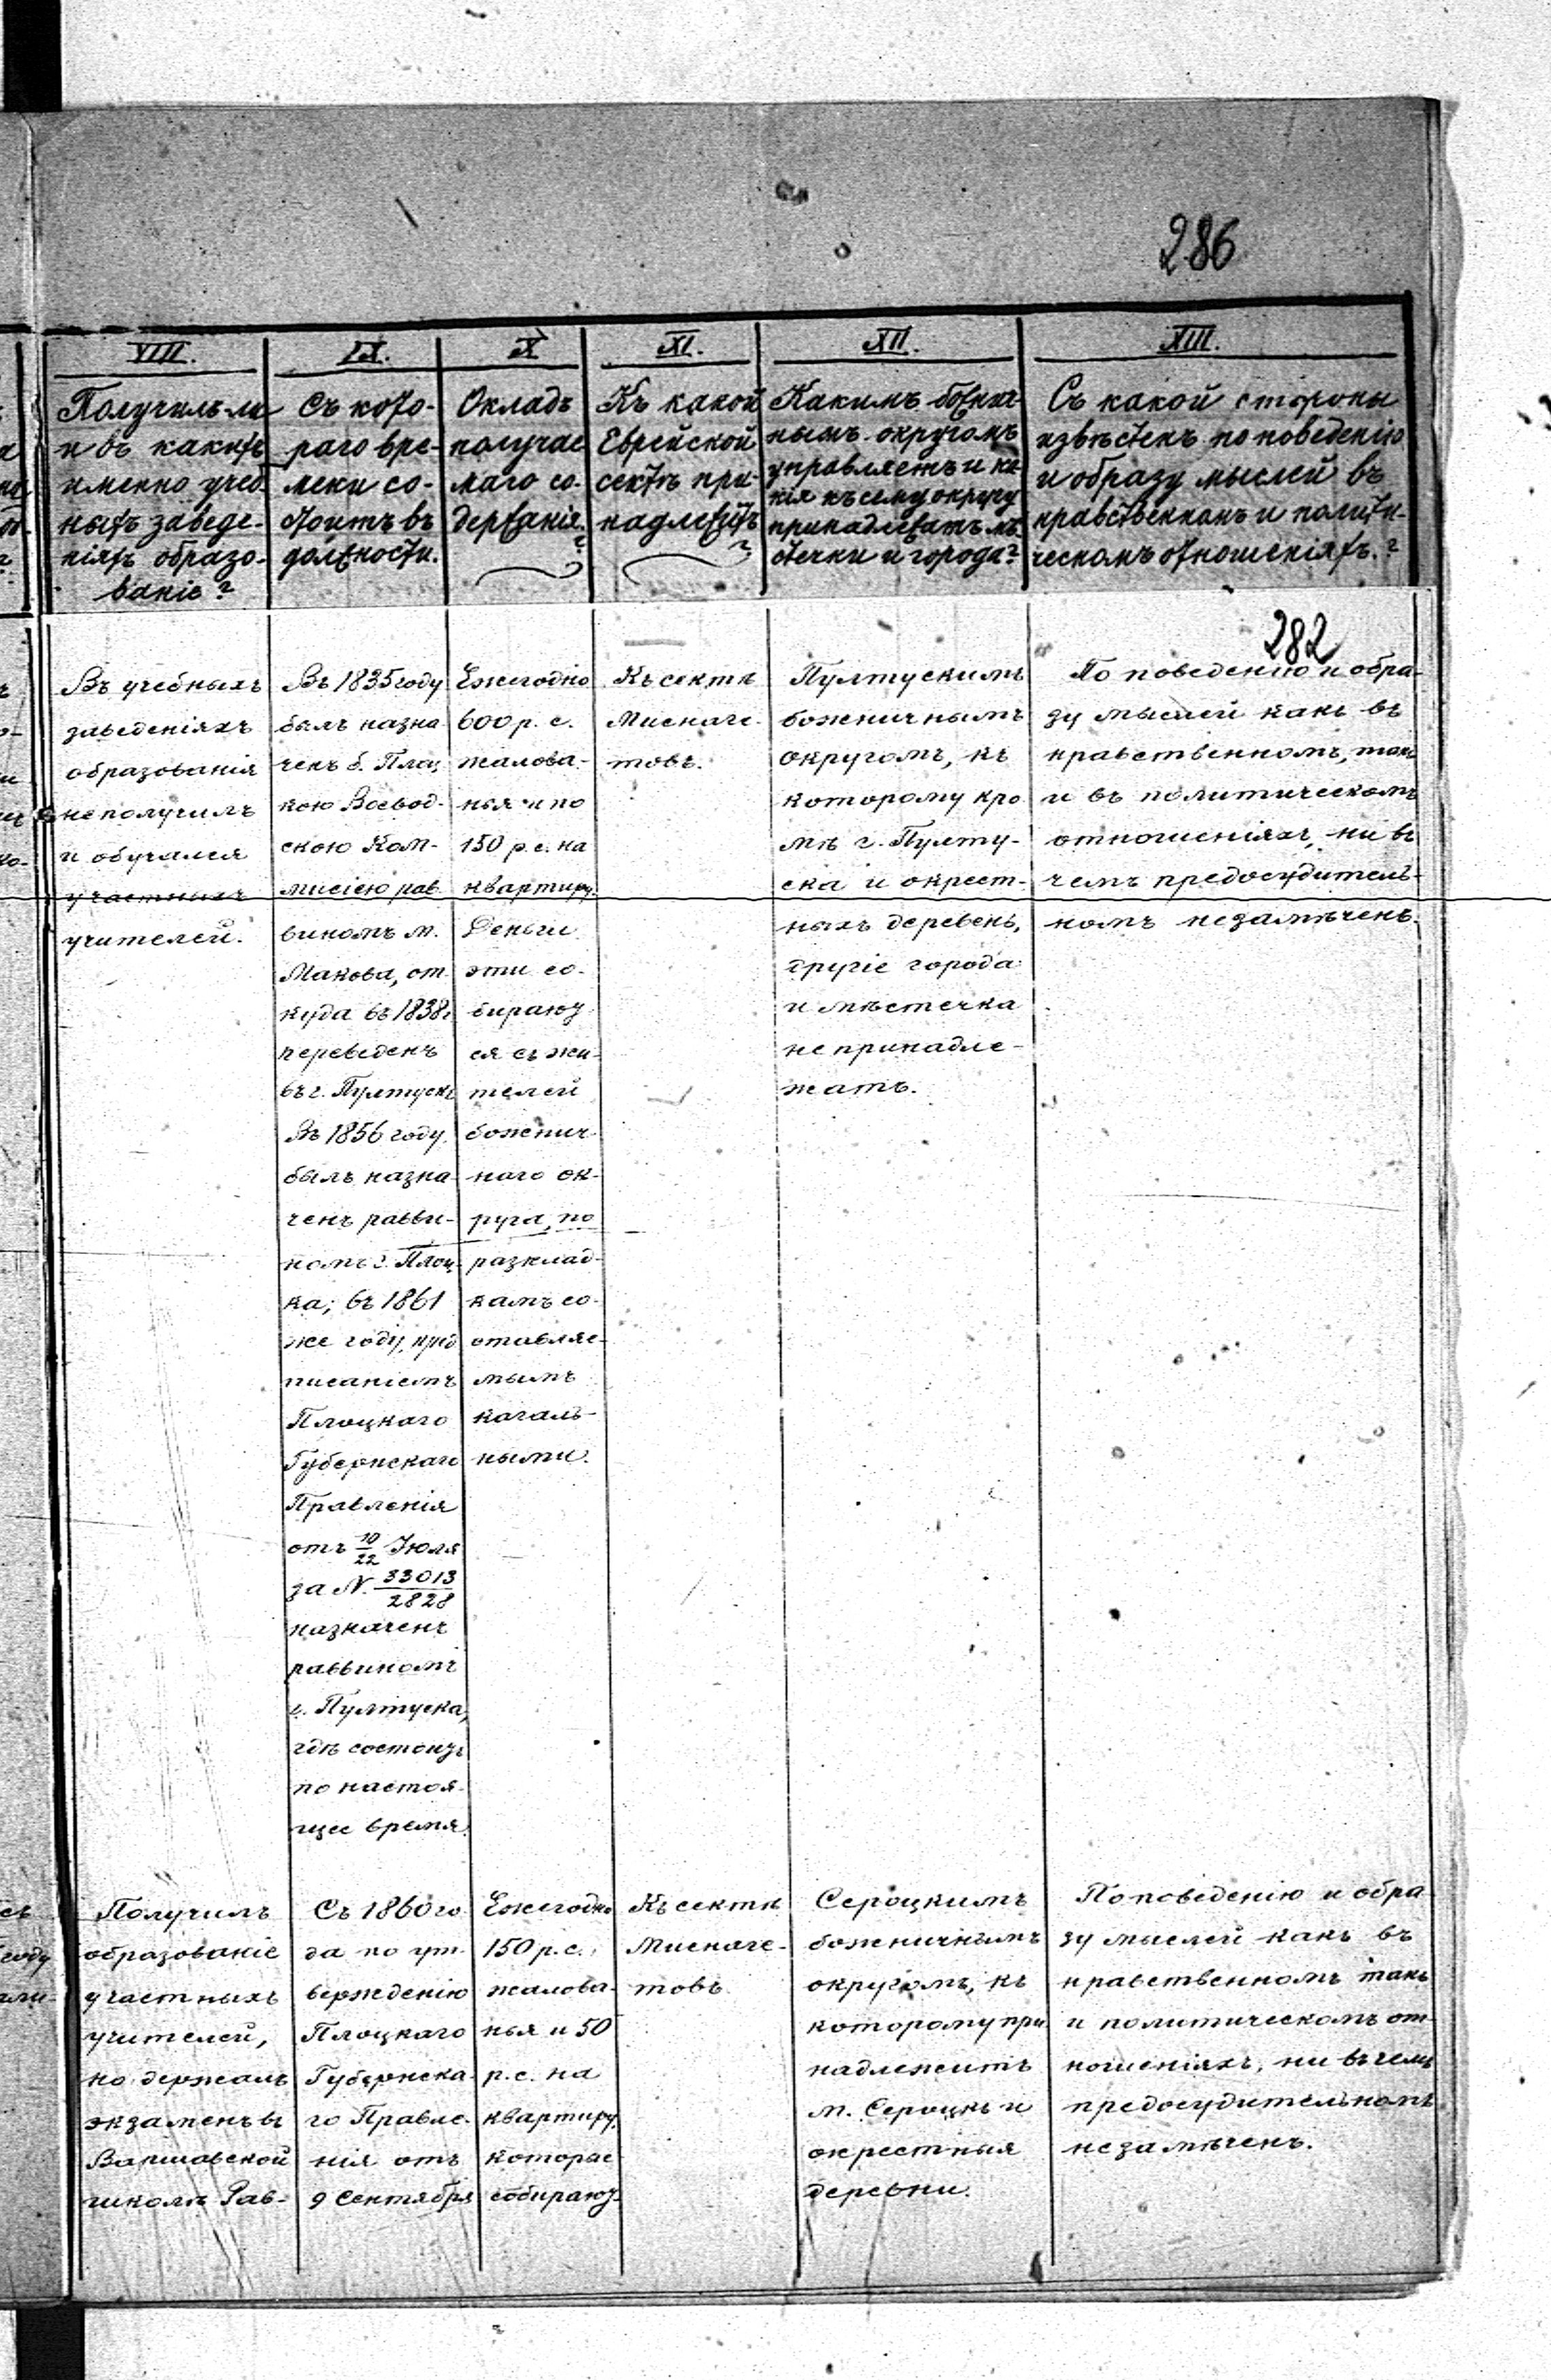 286
VIII.
Получилъ-ли
и въ какихъ
именно учеб-
ныхъ заведе-
ніяхъ образо-
ваніе?
IX.
Съ кото-
раго вре-
мени со-
стоитъ въ
должности.
X
Окладъ
получае
маго со-
держанія.
?
XI.
Къ какой
Еврейской
сектѣ при-
надлежитъ
?
XII.
Какимъ божнич
нымъ округомъ
управляетъ и ка
кія къ сему округу
принадлежатъ мѣ
стечки и города?
XIII.
Съ какой стороны
извѣстенъ по поведенію
и образу мыслей въ
нравственномъ и полити-
ческомъ отношеніяхъ.?
282
Въ учебныхъ
заведеніяхъ
образованія
не получилъ
и обучался
у частныхъ
учителей.
Въ 1835 году
былъ назна
ченъ б. Плоц
кою Воевод-
скою Ком-
мисіею рав
виномъ м.
Макова, от
куда въ 1838 г
переведенъ
въ г. Пултускъ
Въ 1856 году
былъ назна
ченъ равви-
номъ г. Плоц
ка; въ 1861
же году, пред
писаніемъ
Плоцкаго
Губернскаго
Правленія
отъ 10/22 Юля
за N. 33013/2828
назначенъ
раввиномъ
г. Пултуска,
гдѣ состоитъ
по настоя-
щее время.
Ежегодно
600 р. с.
жалова-
нья и по
150 р. с. на
квартиру.
Деньги
эти со-
бирают
ся съ жи-
телей
божнич-
наго ок-
руга, по
расклад-
камъ со-
ставляе-
мымъ
кагаль-
ными.
Къ сектѣ
Миснаге-
товъ.
Пултускимъ
божничнымъ
округомъ, къ
которому кро
мѣ г. Пулту-
ска и окрест-
ныхъ деревень,
другіе города
и мѣстечка
не принадле-
жатъ.
По поведенію и обра-
зу мыслей какъ въ
нравственномъ, такъ
и въ политическомъ
отношеніяхъ, ни въ
чемъ предосудитель-
номъ незамѣченъ.
Получилъ
образованіе
у частныхъ
учителей,
но держалъ
экзаменъ въ
Варшавской
школѣ Рав-
Съ 1860 го
да по ут-
вержденію
Плоцкаго
Губернска-
го Правле-
нія отъ
9 Сентября
Ежегодно
150 р. с.
жалова-
нья и 50
р. с. на
квартиру,
которые
собирают-
Къ сектѣ
Миснаге-
товъ
Сероцкимъ
божничнымъ
округомъ, къ
которому при
надлежитъ
м. Сероцкъ и
окрестныя
деревни.
По поведенію и обра
зу мыслей какъ въ
нравственномъ такъ
и политическомъ от
ношеніяхъ, ни въ чемъ
предосудительномъ
незамѣченъ.